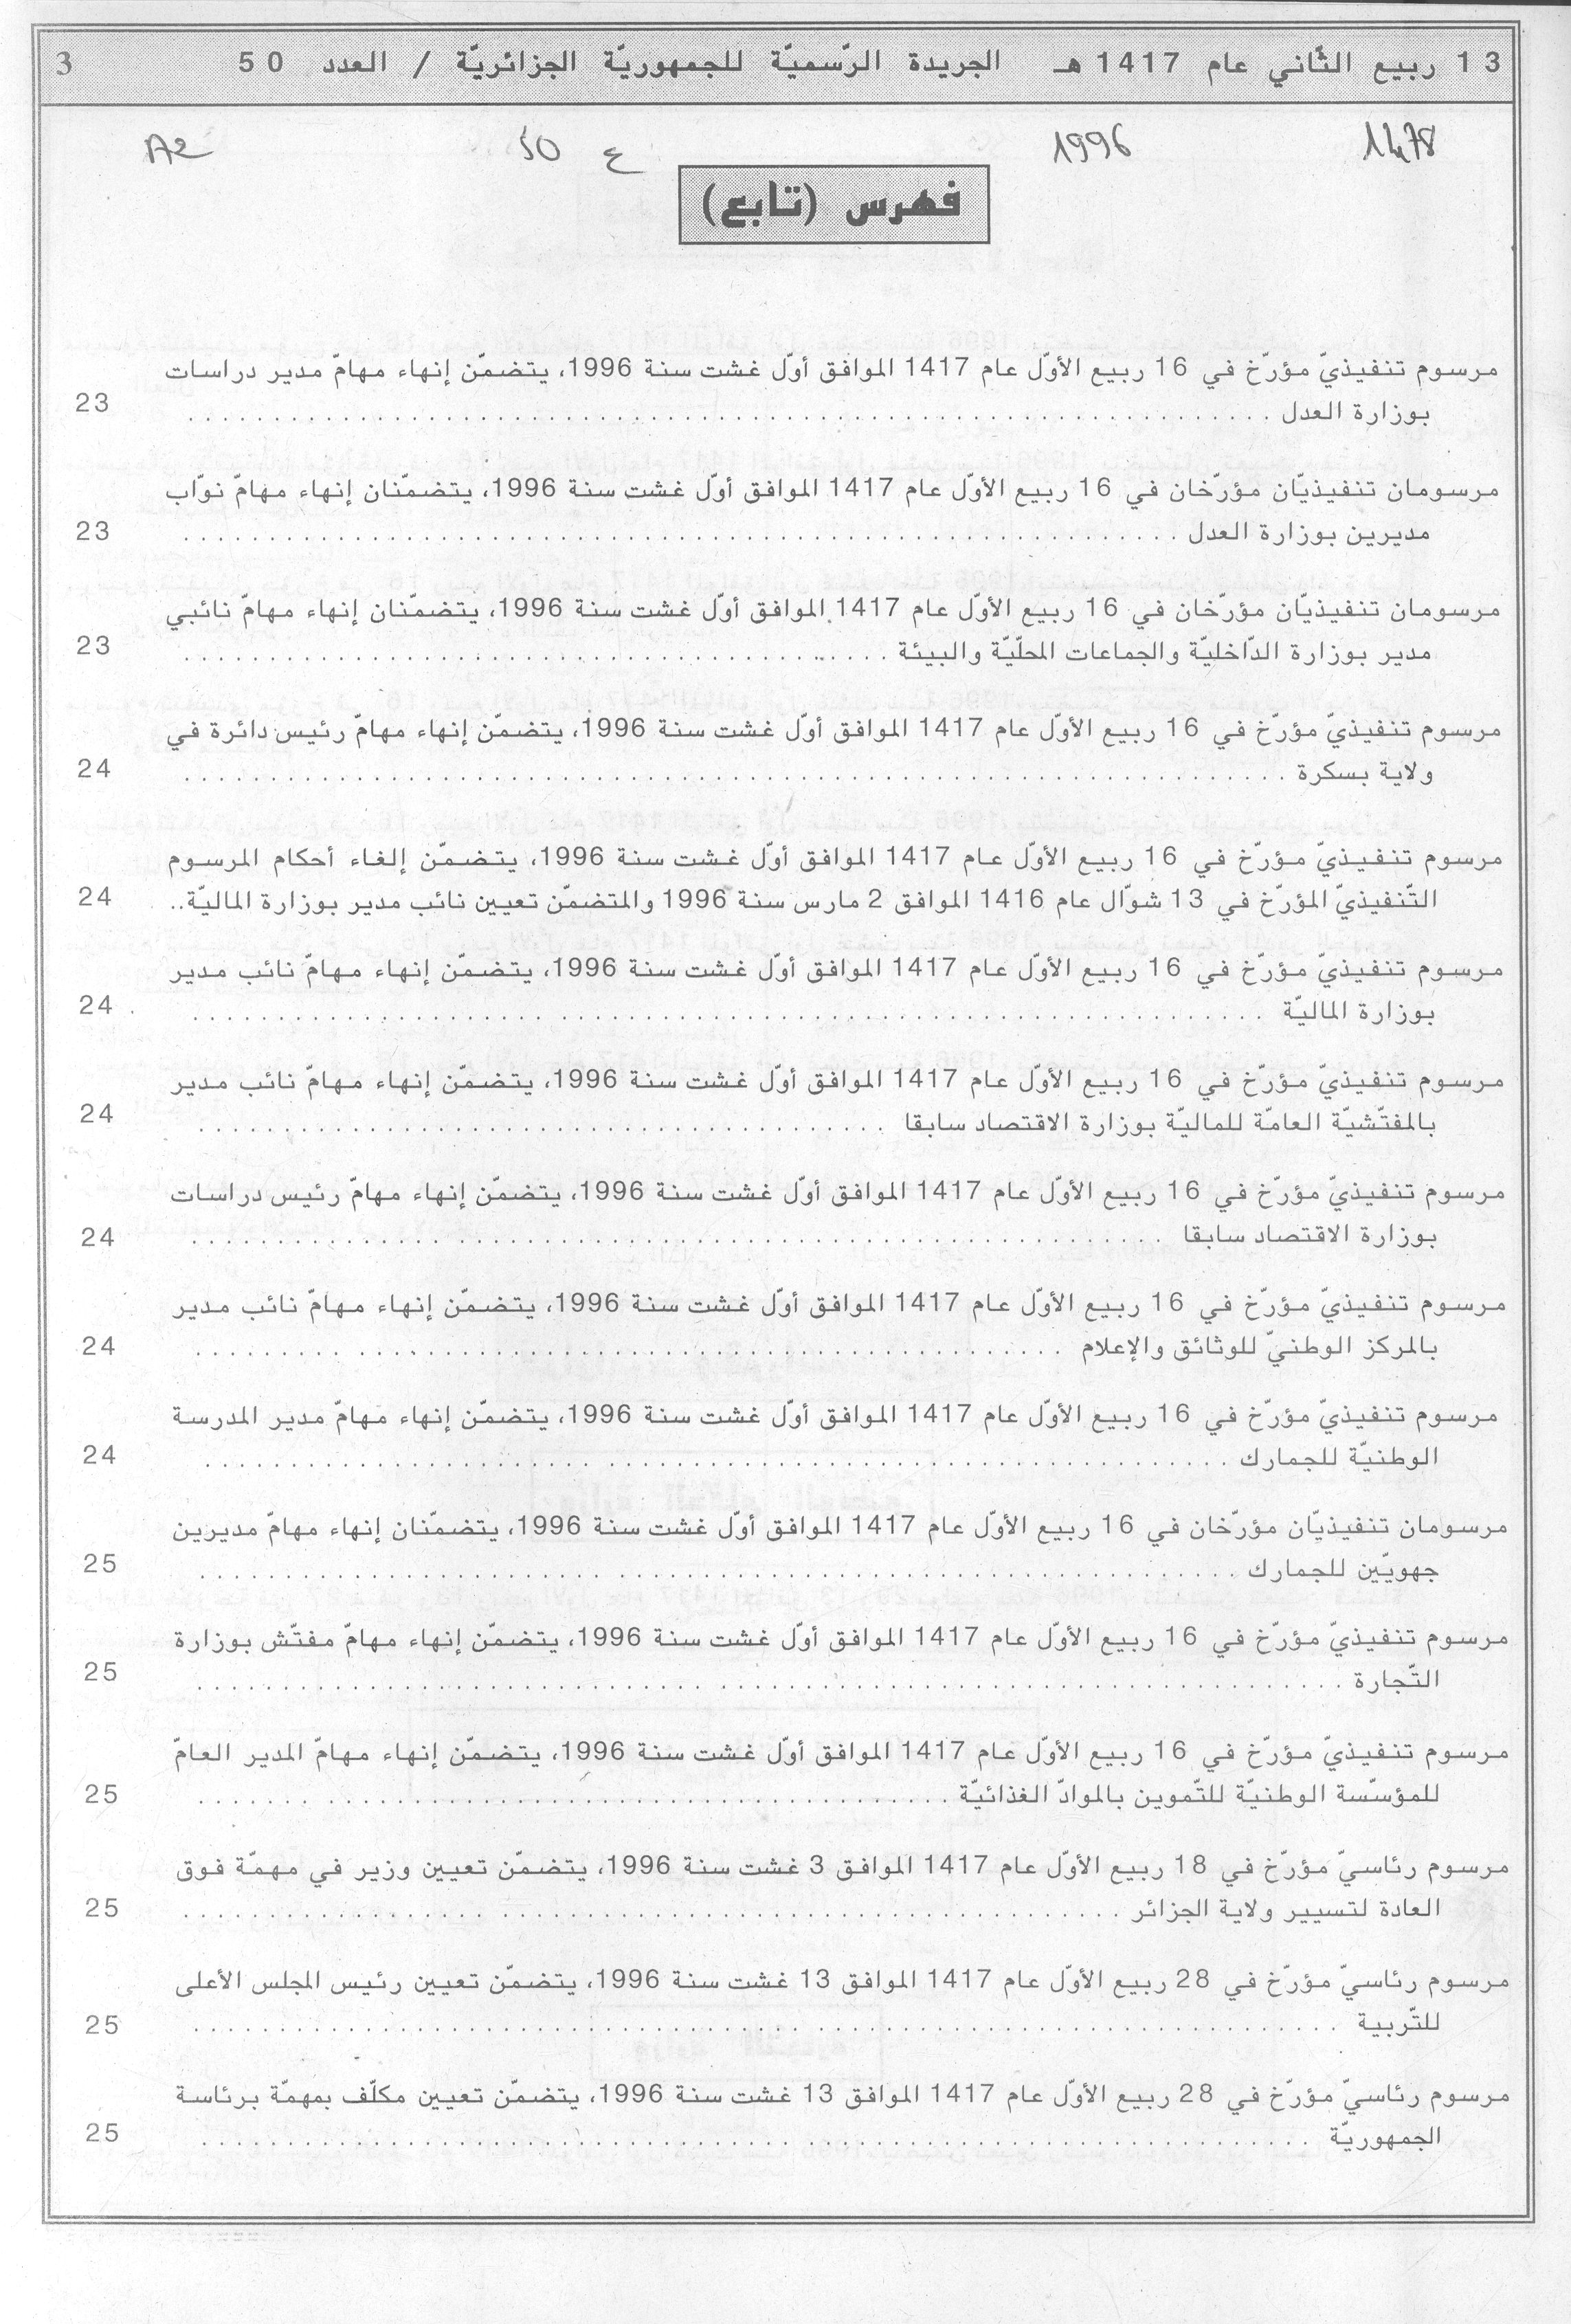 13 ربيع الثّاني عام 1417 هـ الجريدة الرّسميّة للجمهوريّة الجزائريّة / العدد 50 3
1478 1996 ع 50 A2
فهرس (تابع)
مرسوم تنفيذيّ مؤرّخ في 16 ربيع الأوّل عام 1417 الموافق أوّل غشت سنة 1996، يتضمّن إنهاء مهامّ مدير دراسات
بوزارة العدل .......... 23
مرسومان تنفيذيّان مؤرّخان في 16 ربيع الأوّل عام 1417 الموافق أوّل غشت سنة 1996، يتضمّنان إنهاء مهامّ نوّاب
مديرين بوزارة العدل .......... 23
مرسومان تنفيذيّان مؤرّخان في 16 ربيع الأوّل عام 1417 الموافق أوّل غشت سنة 1996، يتضمّنان إنهاء مهامّ نائبي
مدير بوزارة الدّاخليّة والجماعات المحلّيّة والبيئة .......... 23
مرسوم تنفيذيّ مؤرّخ في 16 ربيع الأوّل عام 1417 الموافق أوّل غشت سنة 1996، يتضمّن إنهاء مهامّ رئيس دائرة في
ولاية بسكرة .......... 24
مرسوم تنفيذيّ مؤرّخ في 16 ربيع الأوّل عام 1417 الموافق أوّل غشت سنة 1996، يتضمّن إلغاء أحكام المرسوم
التّنفيذيّ المؤرّخ في 13 شوّال عام 1416 الموافق 2 مارس سنة 1996 والمتضمّن تعيين نائب مدير بوزارة الماليّة.. 24
مرسوم تنفيذيّ مؤرّخ في 16 ربيع الأوّل عام 1417 الموافق أوّل غشت سنة 1996، يتضمّن إنهاء مهامّ نائب مدير
بوزارة الماليّة .......... 24
مرسوم تنفيذيّ مؤرّخ في 16 ربيع الأوّل عام 1417 الموافق أوّل غشت سنة 1996، يتضمّن إنهاء مهامّ نائب مدير
بالمفتّشيّة العامّة للماليّة بوزارة الاقتصاد سابقا .......... 24
مرسوم تنفيذيّ مؤرّخ في 16 ربيع الأوّل عام 1417 الموافق أوّل غشت سنة 1996، يتضمّن إنهاء مهامّ رئيس دراسات
بوزارة الاقتصاد سابقا .......... 24
مرسوم تنفيذيّ مؤرّخ في 16 ربيع الأوّل عام 1417 الموافق أوّل غشت سنة 1996، يتضمّن إنهاء مهامّ نائب مدير
بالمركز الوطنيّ للوثائق والإعلام .......... 24
مرسوم تنفيذيّ مؤرّخ في 16 ربيع الأوّل عام 1417 الموافق أوّل غشت سنة 1996، يتضمّن إنهاء مهامّ مدير المدرسة
الوطنيّة للجمارك .......... 24
مرسومان تنفيذيّان مؤرّخان في 16 ربيع الأوّل عام 1417 الموافق أوّل غشت سنة 1996، يتضمّنان إنهاء مهامّ مديرين
جهويّين للجمارك .......... 25
مرسوم تنفيذيّ مؤرّخ في 16 ربيع الأوّل عام 1417 الموافق أوّل غشت سنة 1996، يتضمّن إنهاء مهامّ مفتّش بوزارة
التّجارة .......... 25
مرسوم تنفيذيّ مؤرّخ في 16 ربيع الأوّل عام 1417 الموافق أوّل غشت سنة 1996، يتضمّن إنهاء مهامّ المدير العامّ
للمؤسّسة الوطنيّة للتّموين بالموادّ الغذائيّة .......... 25
مرسوم رئاسيّ مؤرّخ في 18 ربيع الأوّل عام 1417 الموافق 3 غشت سنة 1996، يتضمّن تعيين وزير في مهمّة فوق
العادة لتسيير ولاية الجزائر .......... 25
مرسوم رئاسيّ مؤرّخ في 28 ربيع الأوّل عام 1417 الموافق 13 غشت سنة 1996، يتضمّن تعيين رئيس المجلس الأعلى
للتّربية .......... 25
مرسوم رئاسيّ مؤرّخ في 28 ربيع الأوّل عام 1417 الموافق 13 غشت سنة 1996، يتضمّن تعيين مكلّف بمهمّة برئاسة
الجمهوريّة .......... 25